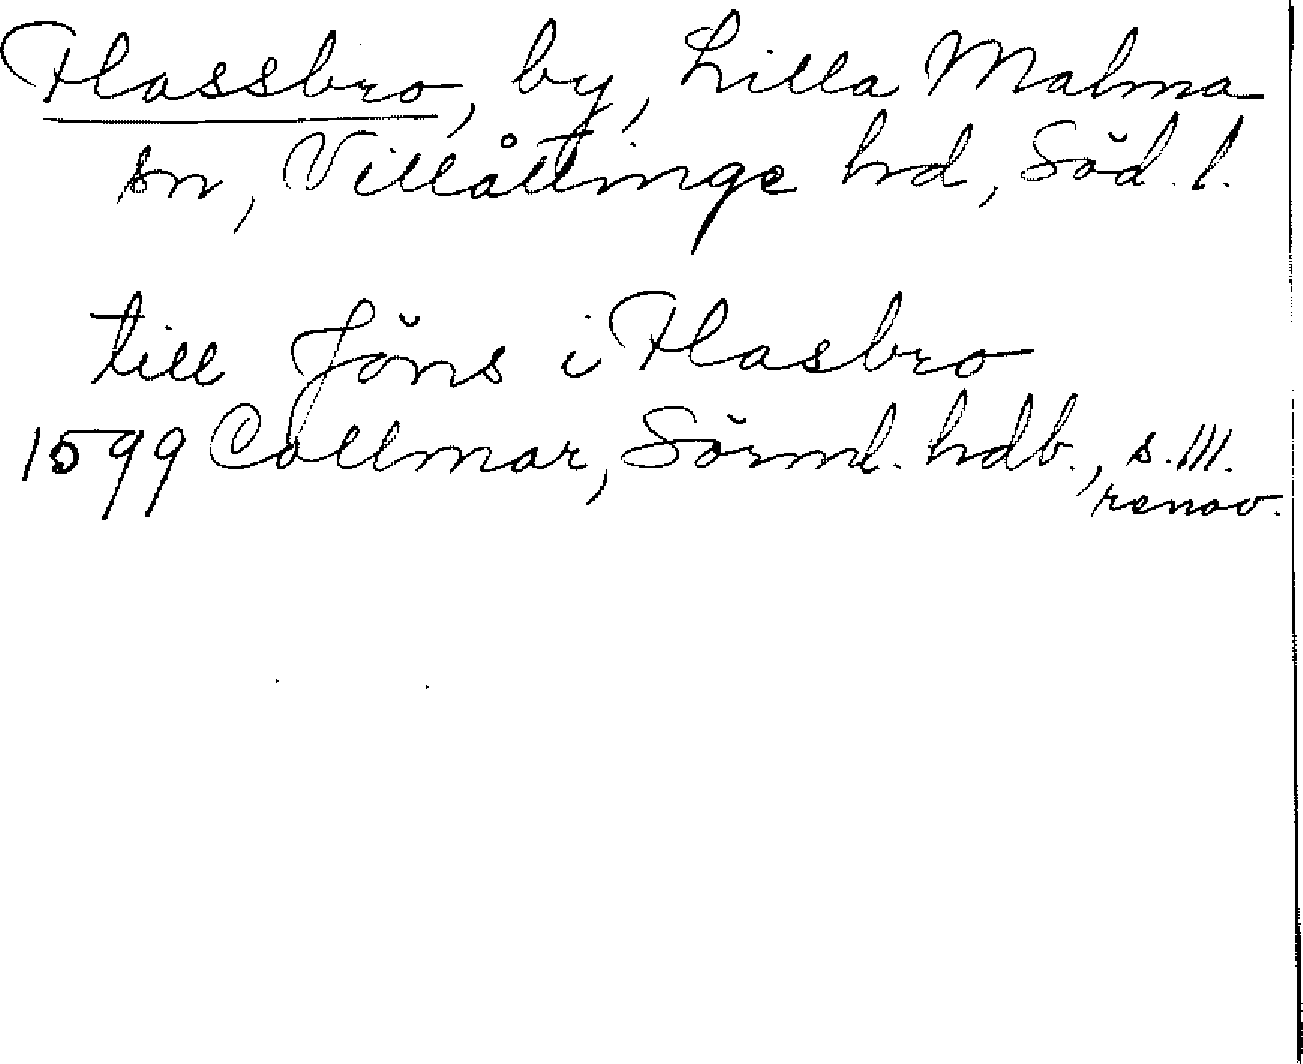 Hassbro, by, Lilla Malma
sn, Villåttinge hd, Söd. l.
till Jöns i Hasbro
1599 Collmar, Sörml. hdb., s. 111.
renov.